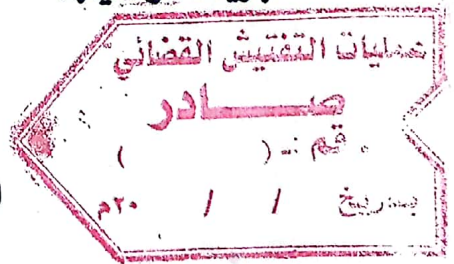 عمليات التفتيش القضائي
صـــــادر
رقم :- (          )
بتاريخ    /    /    ٢٠م